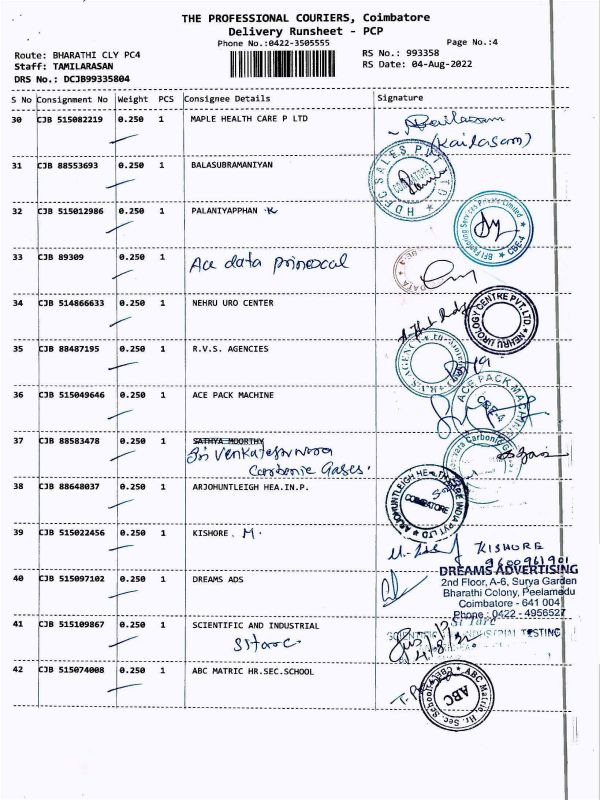 THE PROFESSIONAL COURIERS, Coimbatore
Delivery Runsheet - PCP
Phone No.:0422-3505555
Page No.:4
Route: BHARATHI CLY PC4
RS No.: 993358
Staff: TAMILARASAN
RS Date: 04-Aug-2022
DRS No.: DCJB99335804
S No Consignment No Weight PCS Consignee Details Signature
30 CJB 515082219 0.250 1 MAPLE HEALTH CARE P LTD
(Kailasam)
31 CJB 88553693 0.250 1 BALASUBRAMANIYAN
HDEC SALES PVT LTD
COIMBATORE
32 CJB 515012986 0.250 1 PALANIYAPPHAN K
Services Private Limited
CBE-4
33 CJB 89309 0.250 1 Ace data
34 CJB 514866633 0.250 1 NEHRU URO CENTER
NEHRU UROLOGY CENTRE PVT. LTD.
35 CJB 88487195 0.250 1 R.V.S. AGENCIES
36 CJB 515049646 0.250 1 ACE PACK MACHINE
ACE PACK MACHINE
CBE-4
37 CJB 88583478 0.250 1 SATHYA MOORTHY
Sri Venkateshwara
Carbonic Gases.
38 CJB 88648037 0.250 1 ARJOHUNTLEIGH HEA.IN.P.
ARJOHUNTLEIGH HEALTHCARE INDIA PVT LTD
COIMBATORE
39 CJB 515022456 0.250 1 KISHORE. M.
KISHORE
9600961901
40 CJB 515097102 0.250 1 DREAMS ADS
DREAMS ADVERTISING
2nd Floor, A-6, Surya Garden
Bharathi Colony, Peelamedu
Coimbatore - 641 004
Phone : 0422 - 4956527
41 CJB 515109867 0.250 1 SCIENTIFIC AND INDUSTRIAL
Sitarc
Si Tarc
SCIENTIFIC & INDUSTRIAL TESTING
42 CJB 515074008 0.250 1 ABC MATRIC HR.SEC.SCHOOL
ABC Matric Hr. Sec. School
ABC